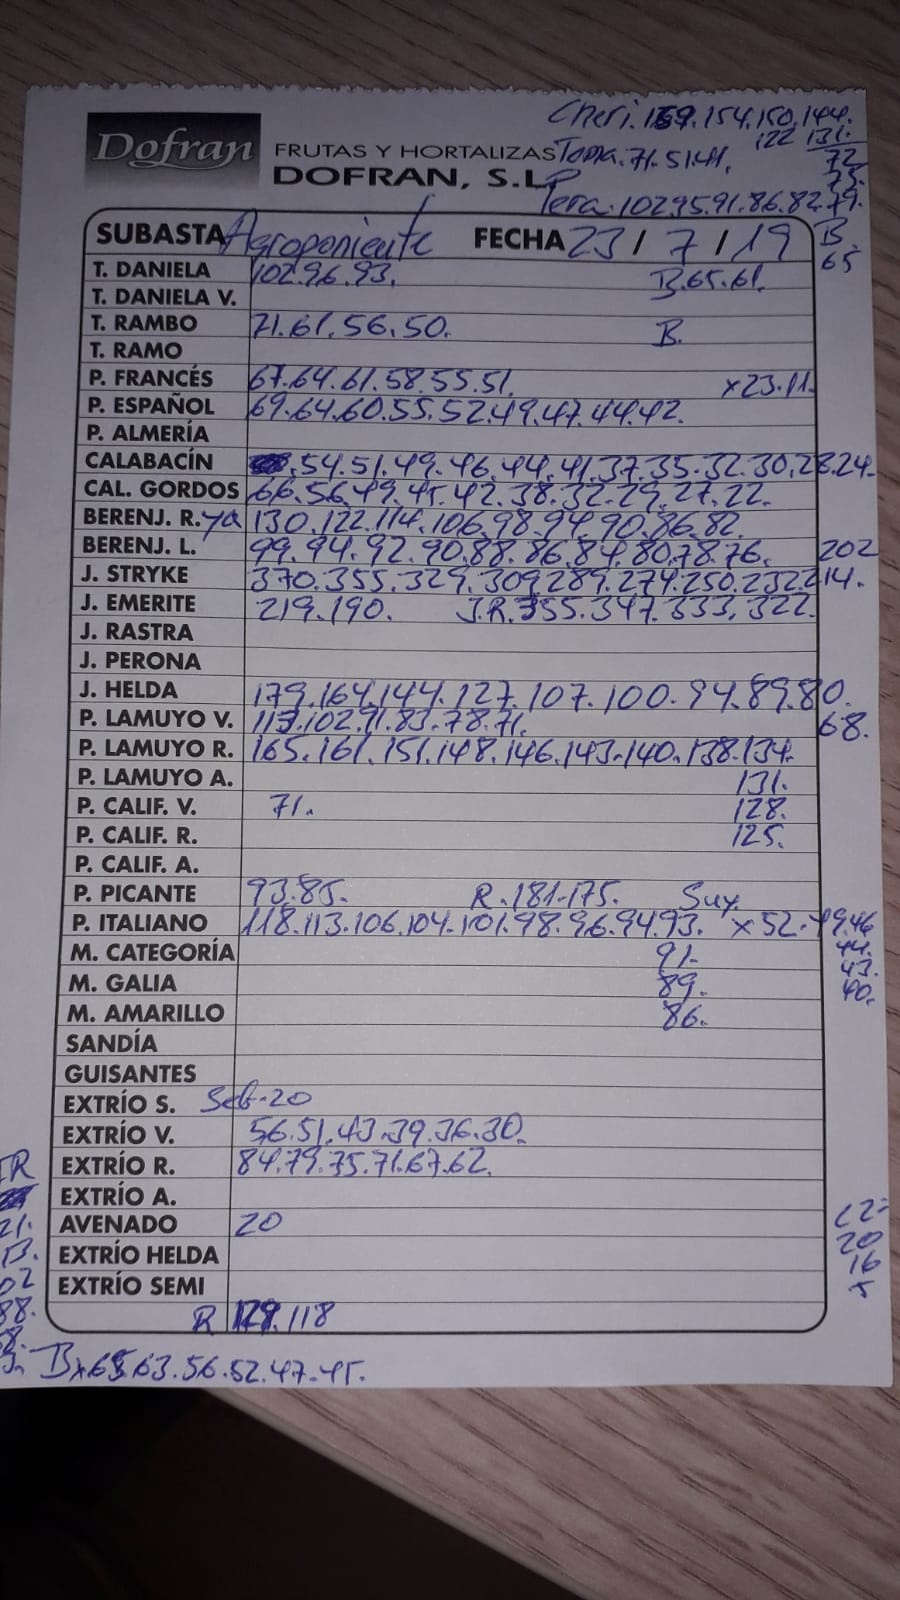 Cheri. 159. 154. 150. 144.
122 131.
Dofran FRUTAS Y HORTALIZAS Toma. 71. 51. 41. 72
DOFRAN, S.L.
Pera. 102. 95. 91. 86. 82. 79.
SUBASTA Agroponiente FECHA 23 / 7 / 19 B.
65
T. DANIELA 102. 96. 93. B. 65. 61.
T. DANIELA V.
T. RAMBO 71. 61. 56. 50. B.
T. RAMO
P. FRANCÉS 67. 64. 61. 58. 55. 51. x 23. 11.
P. ESPAÑOL 69. 64. 60. 55. 52. 49. 47. 44. 42.
P. ALMERÍA
CALABACÍN . 54. 51. 49. 46. 44. 41. 37. 35. 32. 30. 28. 24.
CAL. GORDOS 66. 56. 49. 45. 42. 38. 32. 29. 27. 22.
BERENJ. R. ya 130. 122. 114. 106. 98. 94. 90. 86. 82.
BERENJ. L. 99. 94. 92. 90. 88. 86. 84. 80. 78. 76. 202
J. STRYKE 370. 355. 329. 309. 289. 274. 250. 232. 214.
J. EMERITE 219. 190. J.R. 355. 347. 333. 322.
J. RASTRA
J. PERONA
J. HELDA 179. 164. 144. 127. 107. 100. 94. 89. 80.
P. LAMUYO V. 113. 102. 91. 83. 78. 71. 68.
P. LAMUYO R. 165. 161. 151. 148. 146. 143. 140. 138. 134.
P. LAMUYO A. 131.
P. CALIF. V. 71. 128.
P. CALIF. R. 125.
P. CALIF. A.
P. PICANTE 93. 85. R. 181. 175. Sux.
P. ITALIANO 118. 113. 106. 104. 101. 98. 96. 94. 93. x 52. 49. 46
M. CATEGORÍA 91. 44.
43.
M. GALIA 89. 40.
M. AMARILLO 86.
SANDÍA
GUISANTES
EXTRÍO S. 20
EXTRÍO V. 56. 51. 43. 39. 36. 30.
EXTRÍO R. 84. 79. 75. 71. 67. 62.
EXTRÍO A.
AVENADO 20 22-
EXTRÍO HELDA 20
16
EXTRÍO SEMI 5
R 129. 118
B x 65. 63. 56. 52. 47. 45.